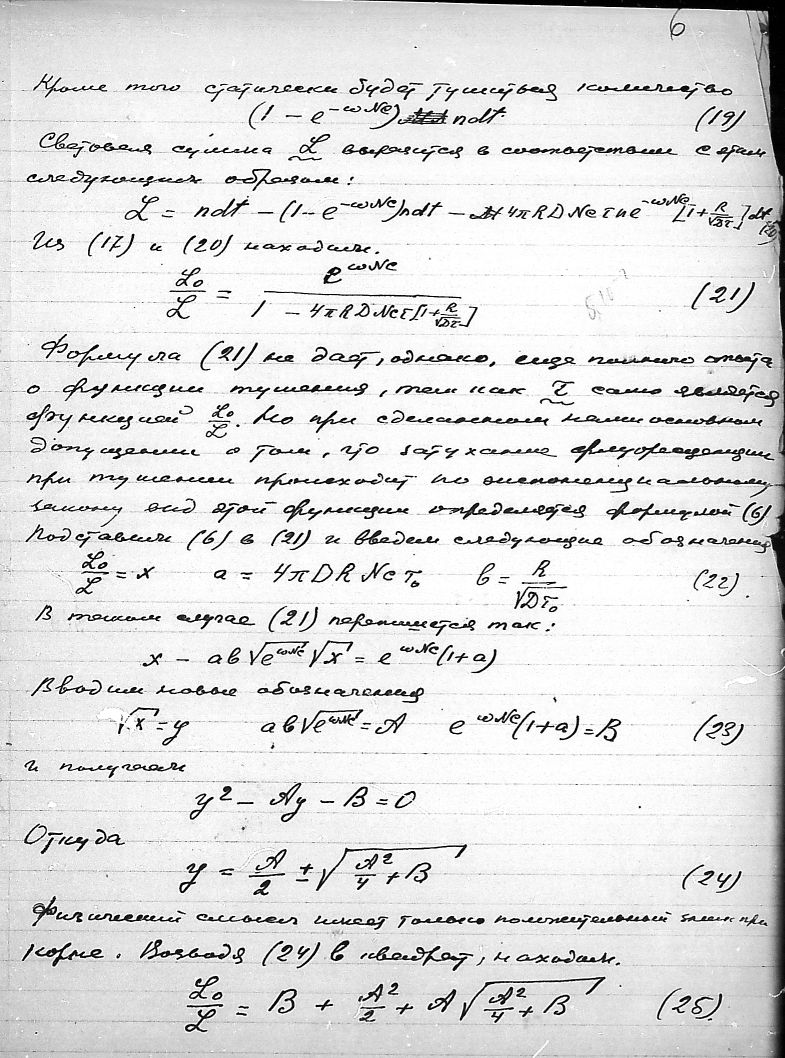 6
Кроме того статически будет тушиться количество
(1 − e^{−ωNc}) ndt (19)
Световая сумма L выразится в соответствии с этим
следующим образом:
L = ndt − (1 − e^{−ωNc})ndt − 4πRDNcτne^{−ωNc}[1 + R/√Dτ]dt (20)
Из (17) и (20) находим.
L₀/L = e^{ωNc} / (1 − 4πRDNcτ[1 + R/√Dτ]) (21)
Формула (21) не дает, однако, еще полного ответа
о функции тушения, так как τ само является
функцией L₀/L. Но при сделанном нами основном
допущении о том, что затухание флуоресценции
при тушении происходит по экспоненциальному
закону вид этой функции определяется формулой (6)
Подставим (6) в (21) и введем следующие обозначения
L₀/L = x a = 4πDRNcτ₀ b = R/√Dτ₀ (22).
В таком случае (21) перепишется так:
x − ab√e^{ωNc} √x = e^{ωNc}(1+a)
Вводим новые обозначения
√x = y ab√e^{ωNc} = A e^{ωNc}(1+a) = B (23)
и получаем
y² − Ay − B = 0
Откуда
y = A/2 ± √(A²/4 + B) (24)
Физический смысл имеет только положительный знак при
корне. Возводя (24) в квадрат, находим.
L₀/L = B + A²/2 + A√(A²/4 + B) (25).